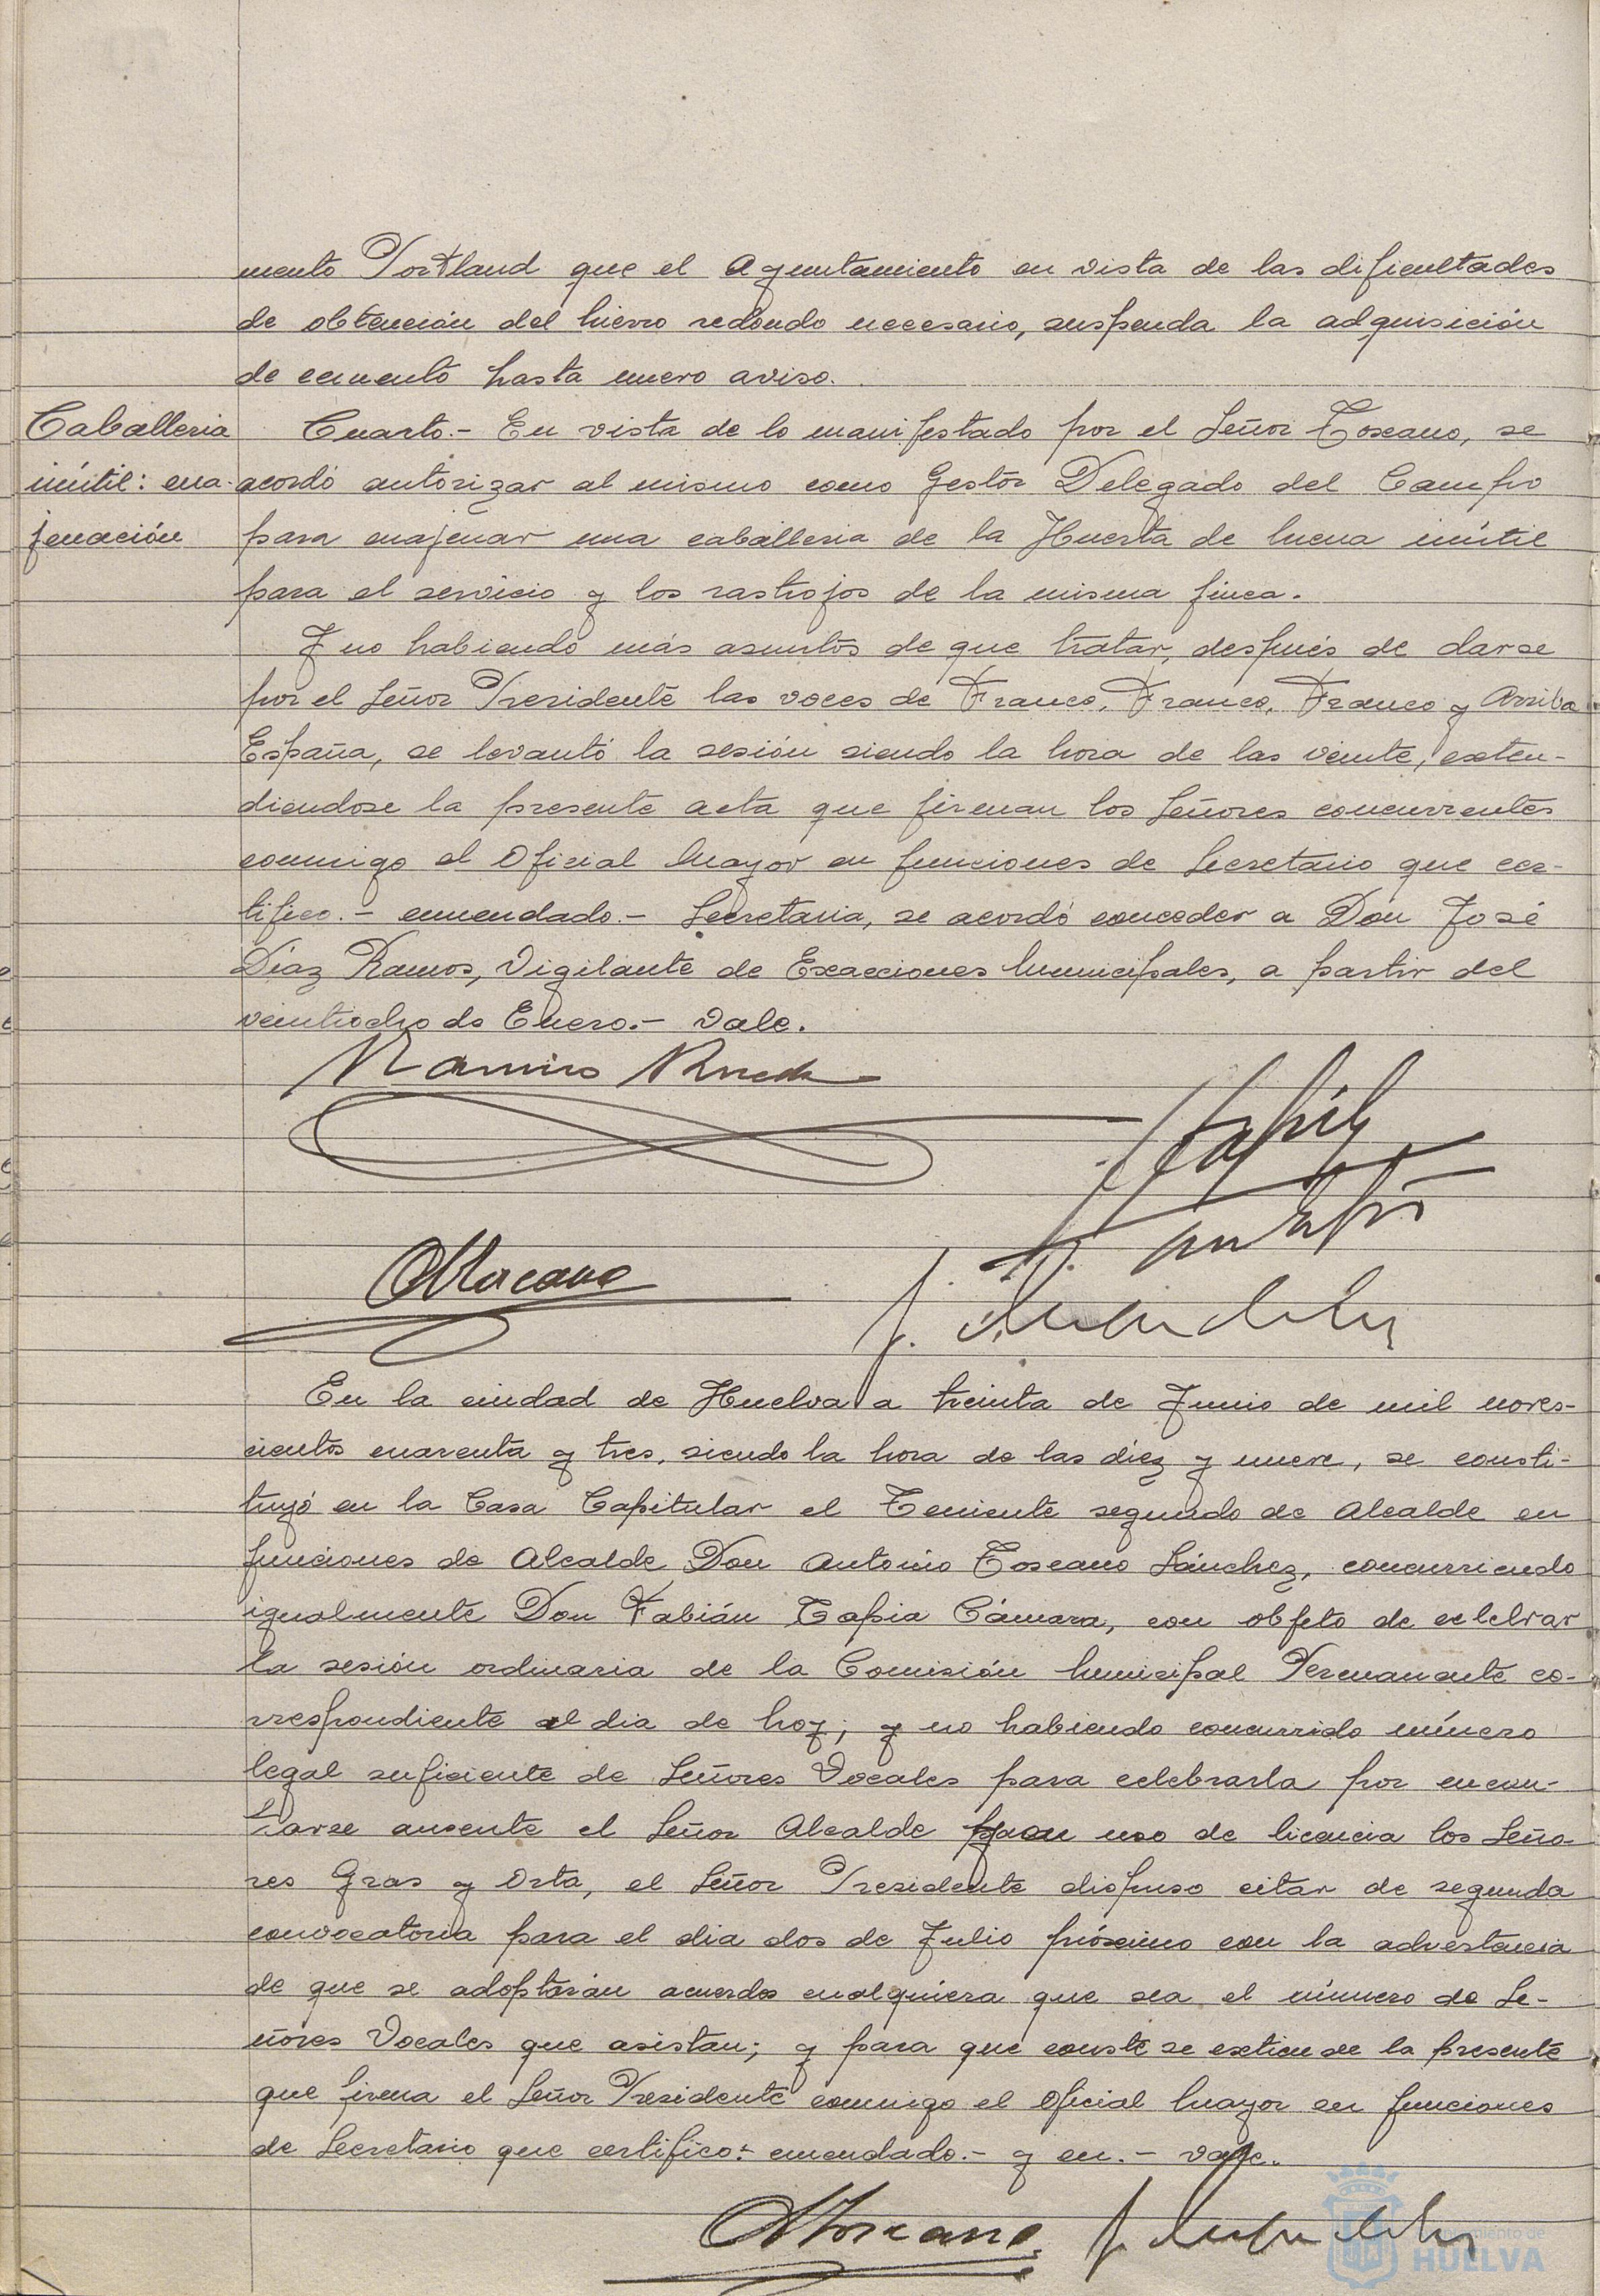 mento Portland que el Ayuntamiento en vista de las dificultades
de obtención del hierro redondo necesario, suspenda la adquisición
de cemento hasta nuevo aviso.
Caballeria
inútil: ena-
jenación
Cuarto.- En vista de lo manifestado por el Señor Toscano, se
acordó autorizar al mismo como Gestor Delegado del Campo
para enajenar una caballeria de la Huerta de Mena inútil
para el servicio y los rastrojos de la misma finca.
Y no habiendo más asuntos de que tratar, después de darse
por el Señor Presidente las voces de Franco, Franco, Franco y Arriba
España, se levantó la sesión siendo la hora de las veinte, exten-
diendose la presente acta que firman los Señores concurrentes
conmigo el Oficial Mayor en funciones de Secretario que cer-
tifico.- enmendado.- Secretaria, se acordó conceder a Don José
Díaz Ramos, Vigilante de Exacciones Municipales, a partir del
veintiocho de Enero.- Vale.
Ramiro Rueda
F Tapia
A Toscano
En la ciudad de Huelva a treinta de Junio de mil noves-
cientos cuarenta y tres, siendo la hora de las diez y nueve, se consti-
tuyó en la Casa Capitular el Teniente segundo de Alcalde en
funciones de Alcalde Don Antonio Toscano Sánchez, concurriendo
igualmente Don Fabián Tapia Cámara, con objeto de celebrar
la sesión ordinaria de la Comisión Municipal Permanente co-
rrespondiente al dia de hoy; y no habiendo concurrido número
legal suficiente de Señores Vocales para celebrarla por encon-
trarse ausente el Señor Alcalde y en uso de licencia los Seño-
res Gras y Orta, el Señor Presidente dispuso citar de segunda
convocatoria para el dia dos de Julio próximo con la advertencia
de que se adoptarán acuerdos cualquiera que sea el número de Se-
ñores Vocales que asistan; y para que conste se extiende la presente
que firma el Señor Presidente conmigo el Oficial Mayor en funciones
de Secretario que certifico.- enmendado.- y en.- vale.
A Toscano
Ayuntamiento de
HUELVA